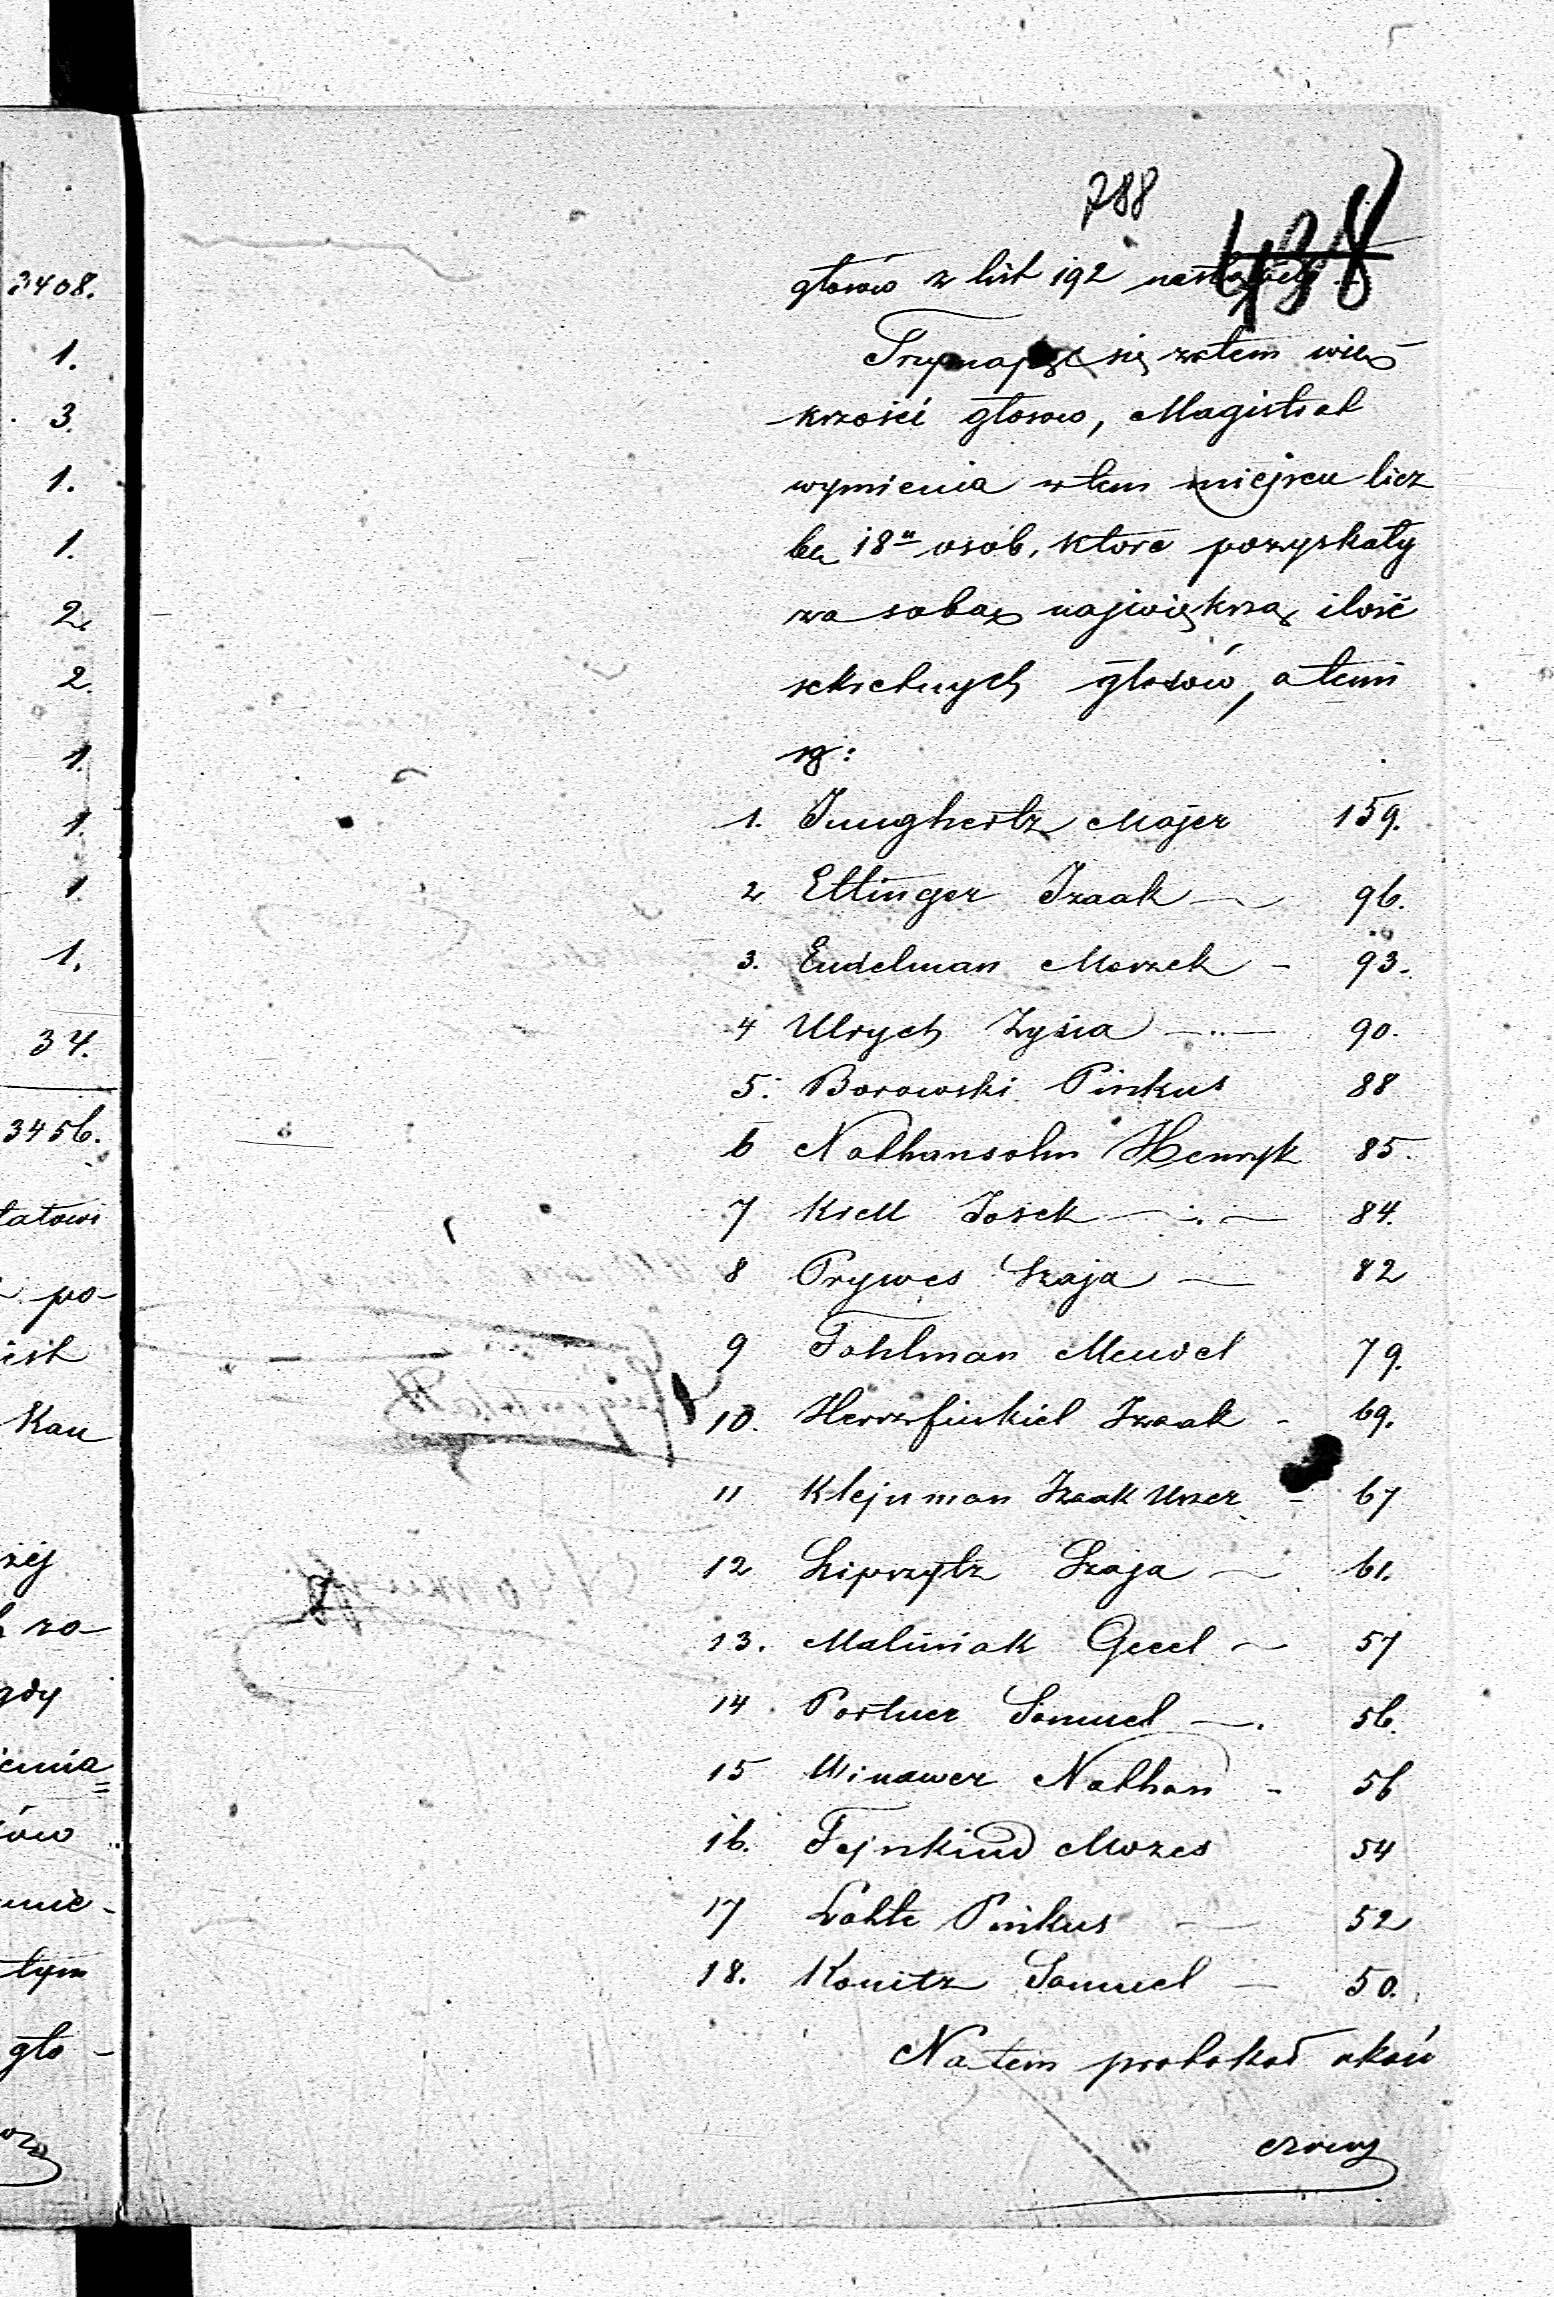 3408.
1.
3.
1.
1.
2.
2.
1.
1.
1.
1.
34.
3456.
po-
Kau
gdy
tym
gło-
788
438
głosów z list 192
Trzymając się zatem więk
krzości głosów, Magistrat
wymienia w tem miejscu licz
bę 18u osób, które pozyskały
za sobą największą ilość
sekretnych głosów, a temi
są:
1. Junghertz Majer 159.
2 Ettinger Izaak — 96.
3. Eudelman Moszek - 93.
4 Ulrych Zysia — 90.
5. Borowski Pinkus 88
6 Nathansohn Henryk 85.
7 Krell Josek — 84.
8 Prywes Szaja — 82
9 Fohlman Mendel 79.
10. Herszfinkiel Izaak - 69.
11 Klejnman Izaak Uszer - 67
12 Lipszytz Szaja — 61.
13. Maliniak Gecel — 57
14 Portner Samuel — 56.
15 Winawer Nathan - 56
16. Fejnkind Mozes 54
17 Lohte Pinkus — 52
18. Konitz Samuel — 50.
Na tem protokoł ukoń
czony